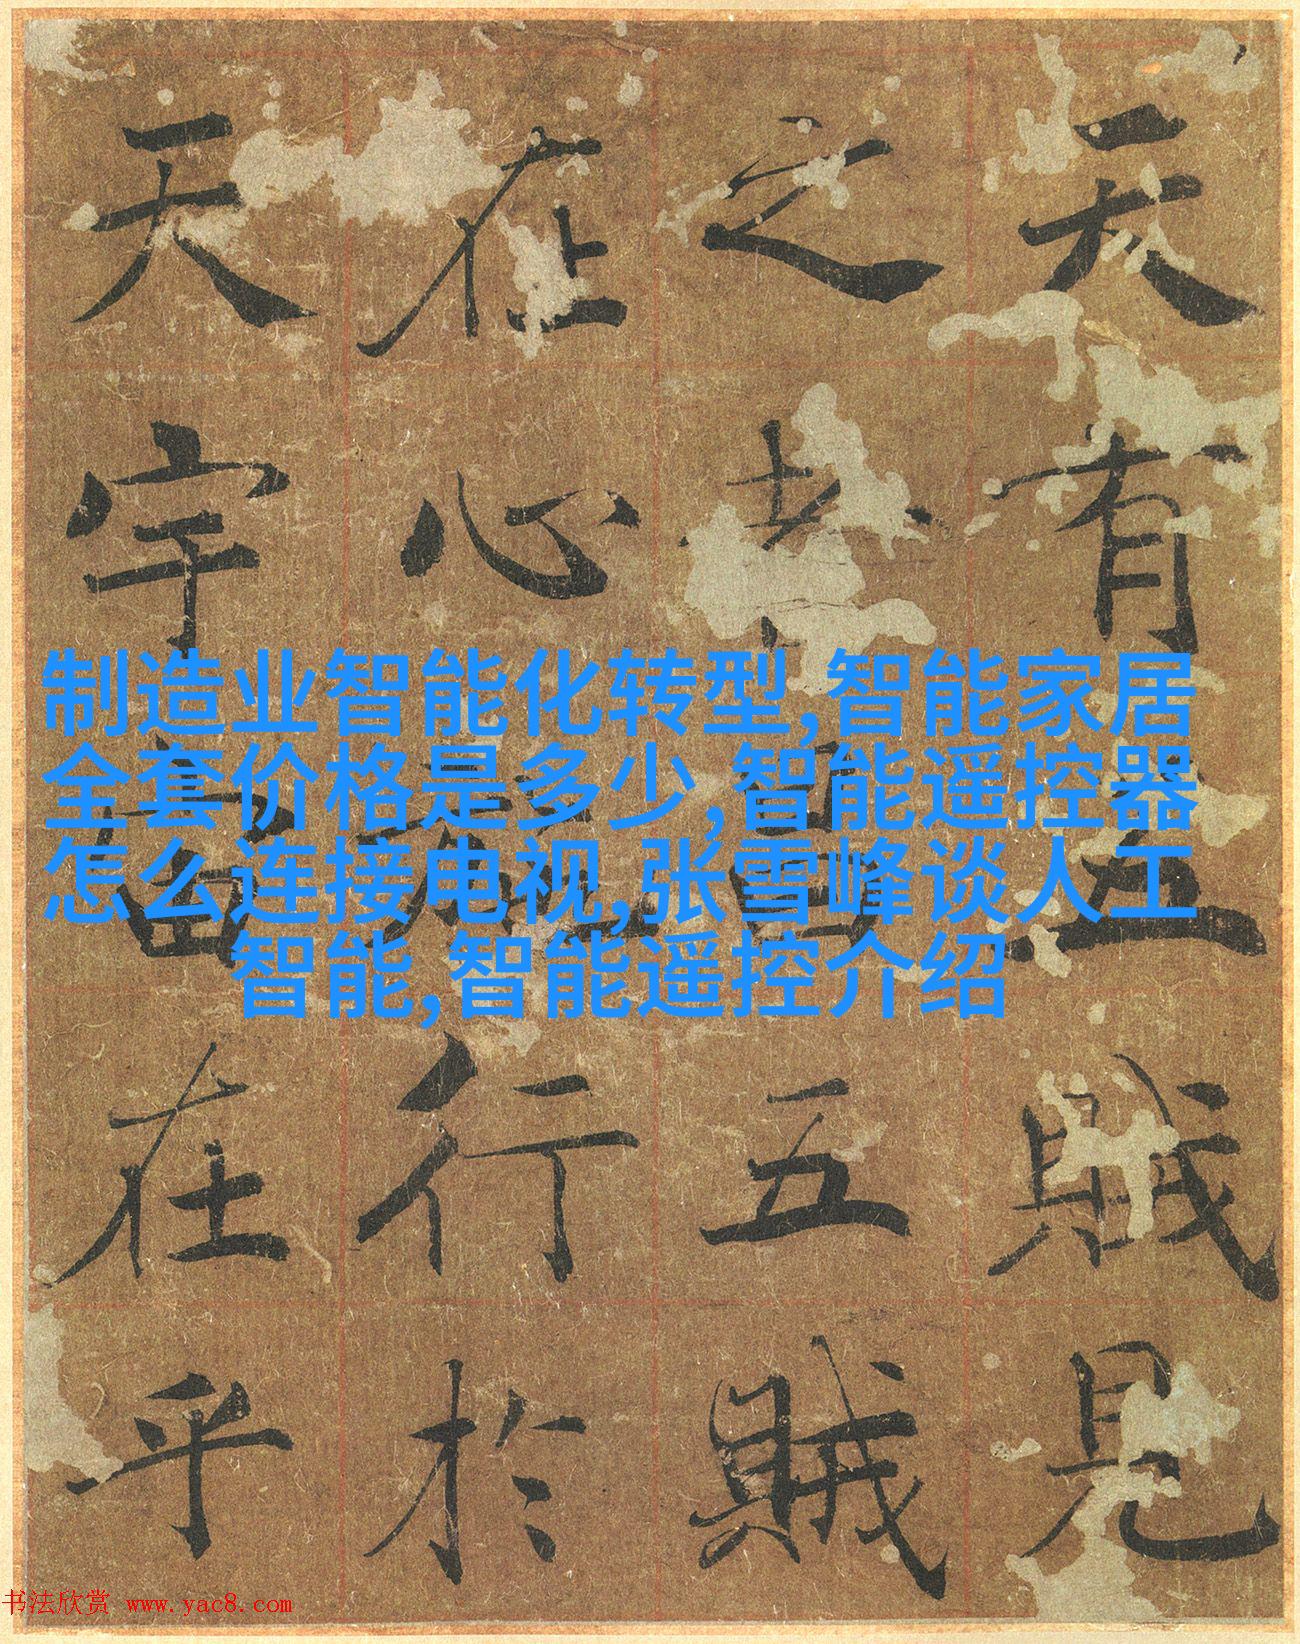 天有五賊見
之者昌五賊
在心施行於
天宇宙在乎
制造业智能化转型,智能家居
全套价格是多少,智能遥控器
怎么连接电视,张雪峰谈人工
智能,智能遥控介绍
书法欣赏 www.yac8.com